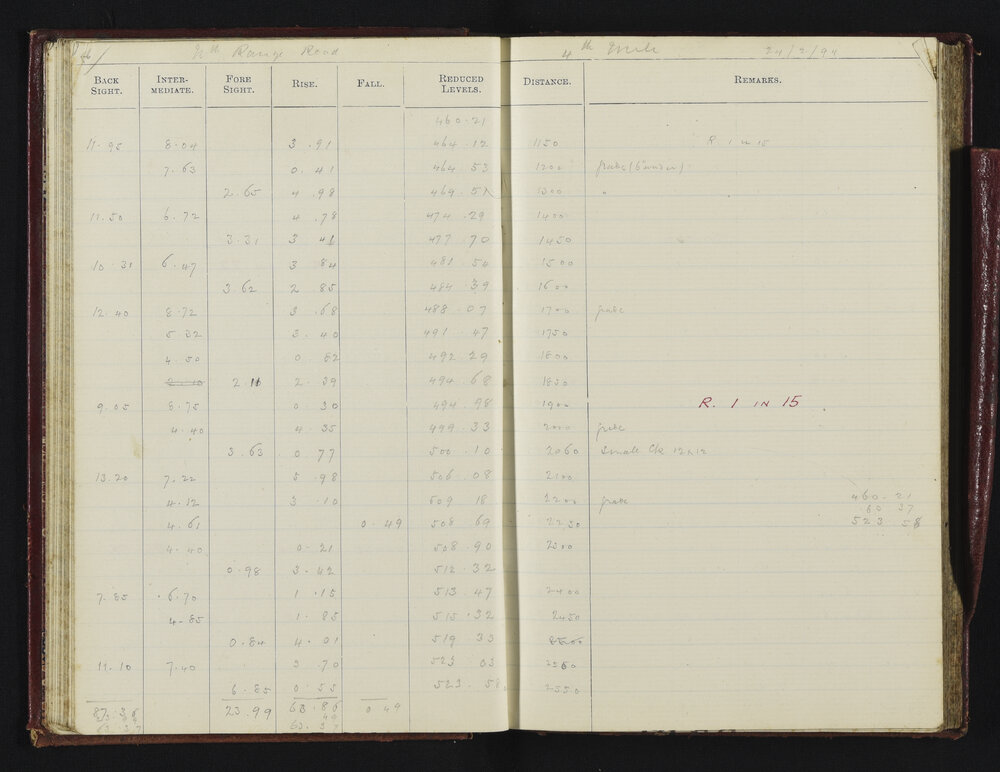 Range Road 4th Mile 24/2/94
BACK SIGHT. INTER-MEDIATE. FORE SIGHT. RISE. FALL. REDUCED LEVELS. DISTANCE. REMARKS.
460.21
11.95 8.04 3.91 464.12 1150 R. 1 in 15
7.63 0.41 464.53 1200
2.65 4.98 469.51 1300 "
11.50 6.72 4.78 474.29 1400
3.31 3.41 477.70 1450
10.31 6.47 3.84 481.54 1500
3.62 2.85 484.39 1600
12.40 8.72 3.68 488.07 1700
5.32 3.40 491.47 1750
4.50 0.82 492.29 1800
2.11 2.39 494.68 1850
9.05 8.75 0.30 494.98 1900 R. 1 IN 15
4.40 4.35 499.33 2000
3.63 0.77 500.10 2060 Small Ck 12x12
13.20 7.22 5.98 506.08 2100
4.12 3.10 509.18 2200 460.21
60 37
4.61 0.49 508.69 2250 523 58
4.40 0.21 508.90 2300
0.98 3.42 512.32
7.85 6.70 1.15 513.47 2400
4.85 1.85 515.32 2450
0.84 4.01 519.33 2500
11.10 7.40 3.70 523.03 2560
6.85 0.55 523.58 2550
87.36 23.99 63.86 0.49
49
63.37 63.37